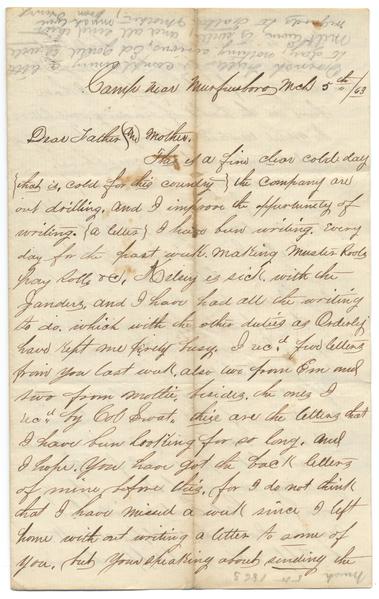 Camp near Murfreesboro Mch 5th/63
Dear Father & Mother.
This is a fine clear cold day
(that is, cold for this country) the company are
out drilling, and I improve the oppertunity of
writing. (a letter) I have been writing. Every
day for the past week. Making Muster Rolls
pay Rolls &C, is sick, with the
Janders, and I have had all the writing
to do. which with the other duties as Orderly
have kept me pretty busy. I recd. five letters
from you last week, also two from Em and
two from Mottie, besides, the ones I
recd. by Col Swat. these are the letters that
I have been looking for so long. and
I hope. You have got the back letters
of mine before this, for I do not think
that I have missed a week since I left
home with out writing a letter to some of
you, but Your speaking about sending the
March 5th 1863